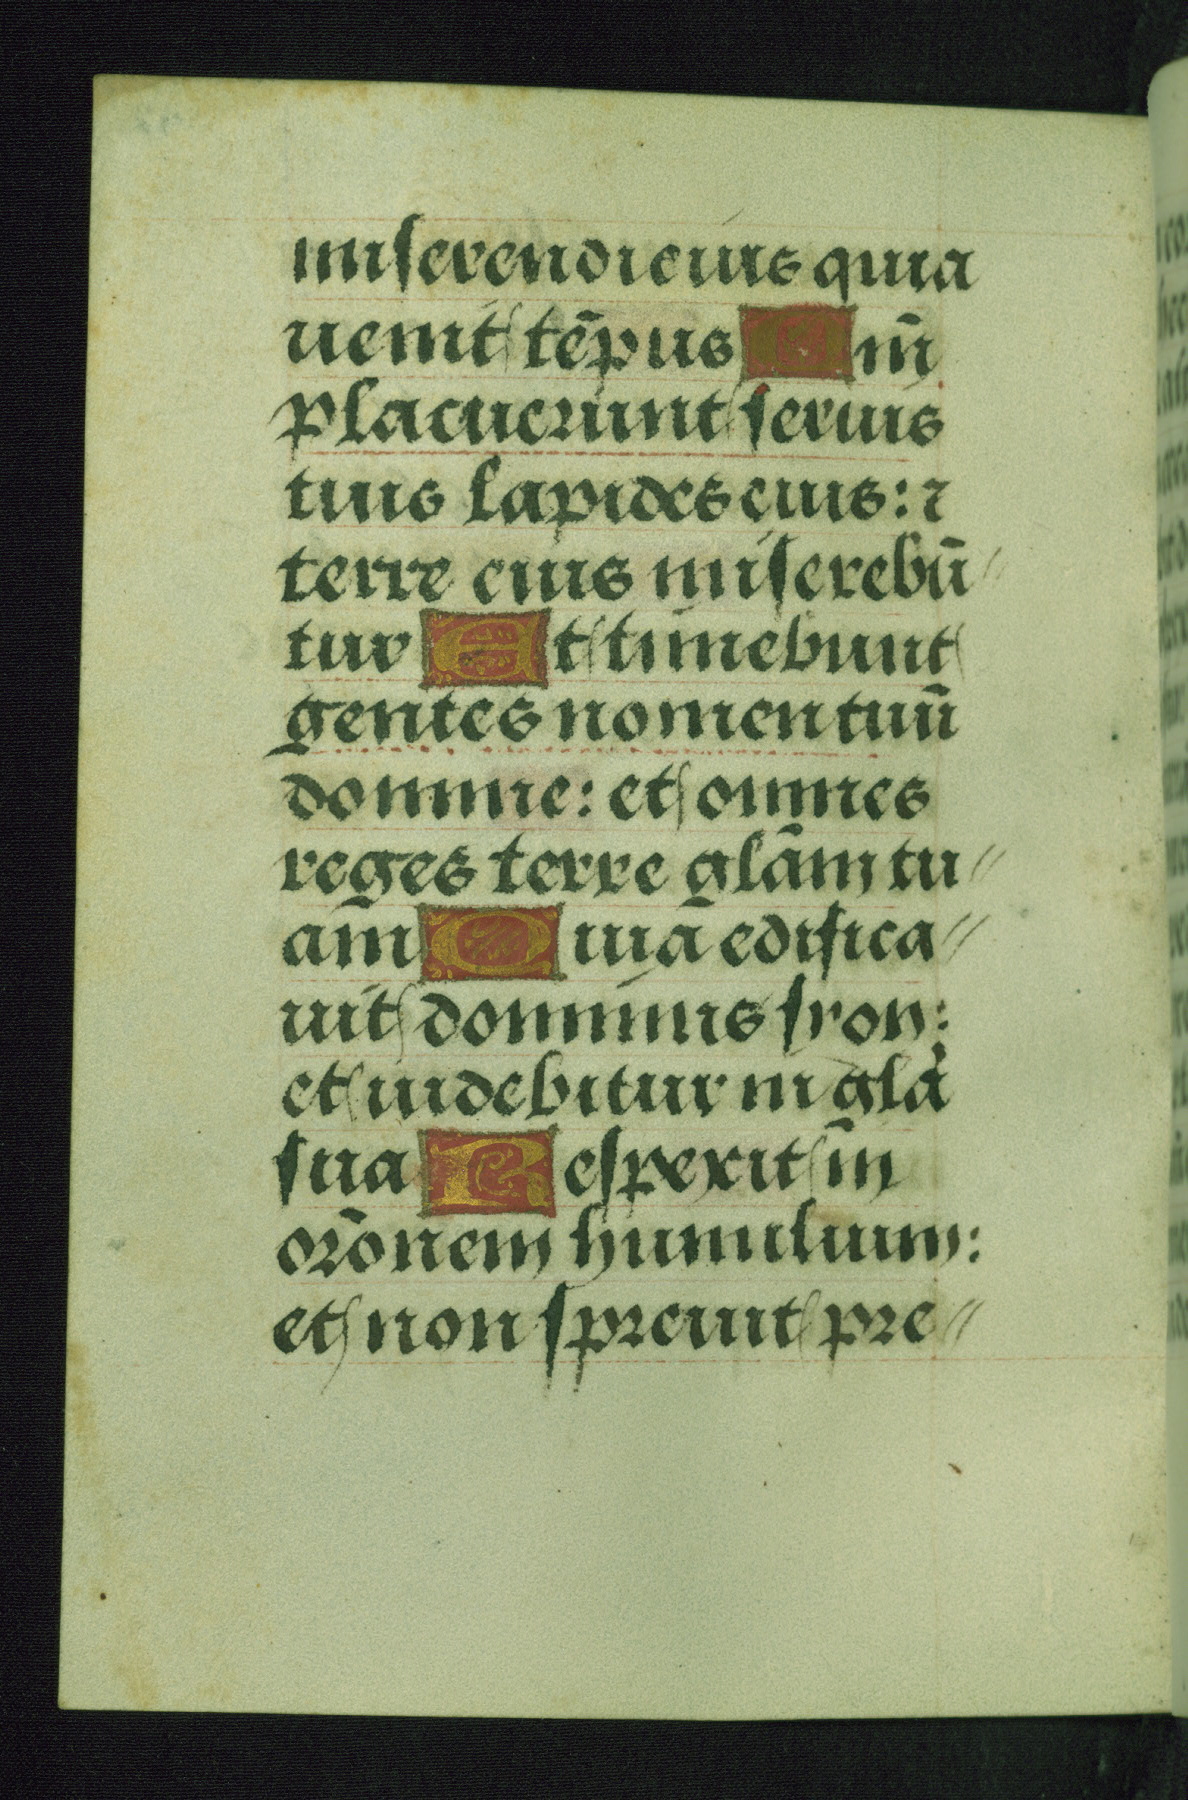 miserendi eius quia
uenit tēpus Qm̄
placuerunt seruis
tuis lapides eius: ⁊
terre eius miserebū//
tur Et timebunt
gentes nomen tuū
domine: et omnes
reges terre glām tu//
am̄ Quiā edifica//
uit dominus sron:
et uidebitur in glā
sua Respexit in̄
orōnem humilium:
et non spreuit pre//